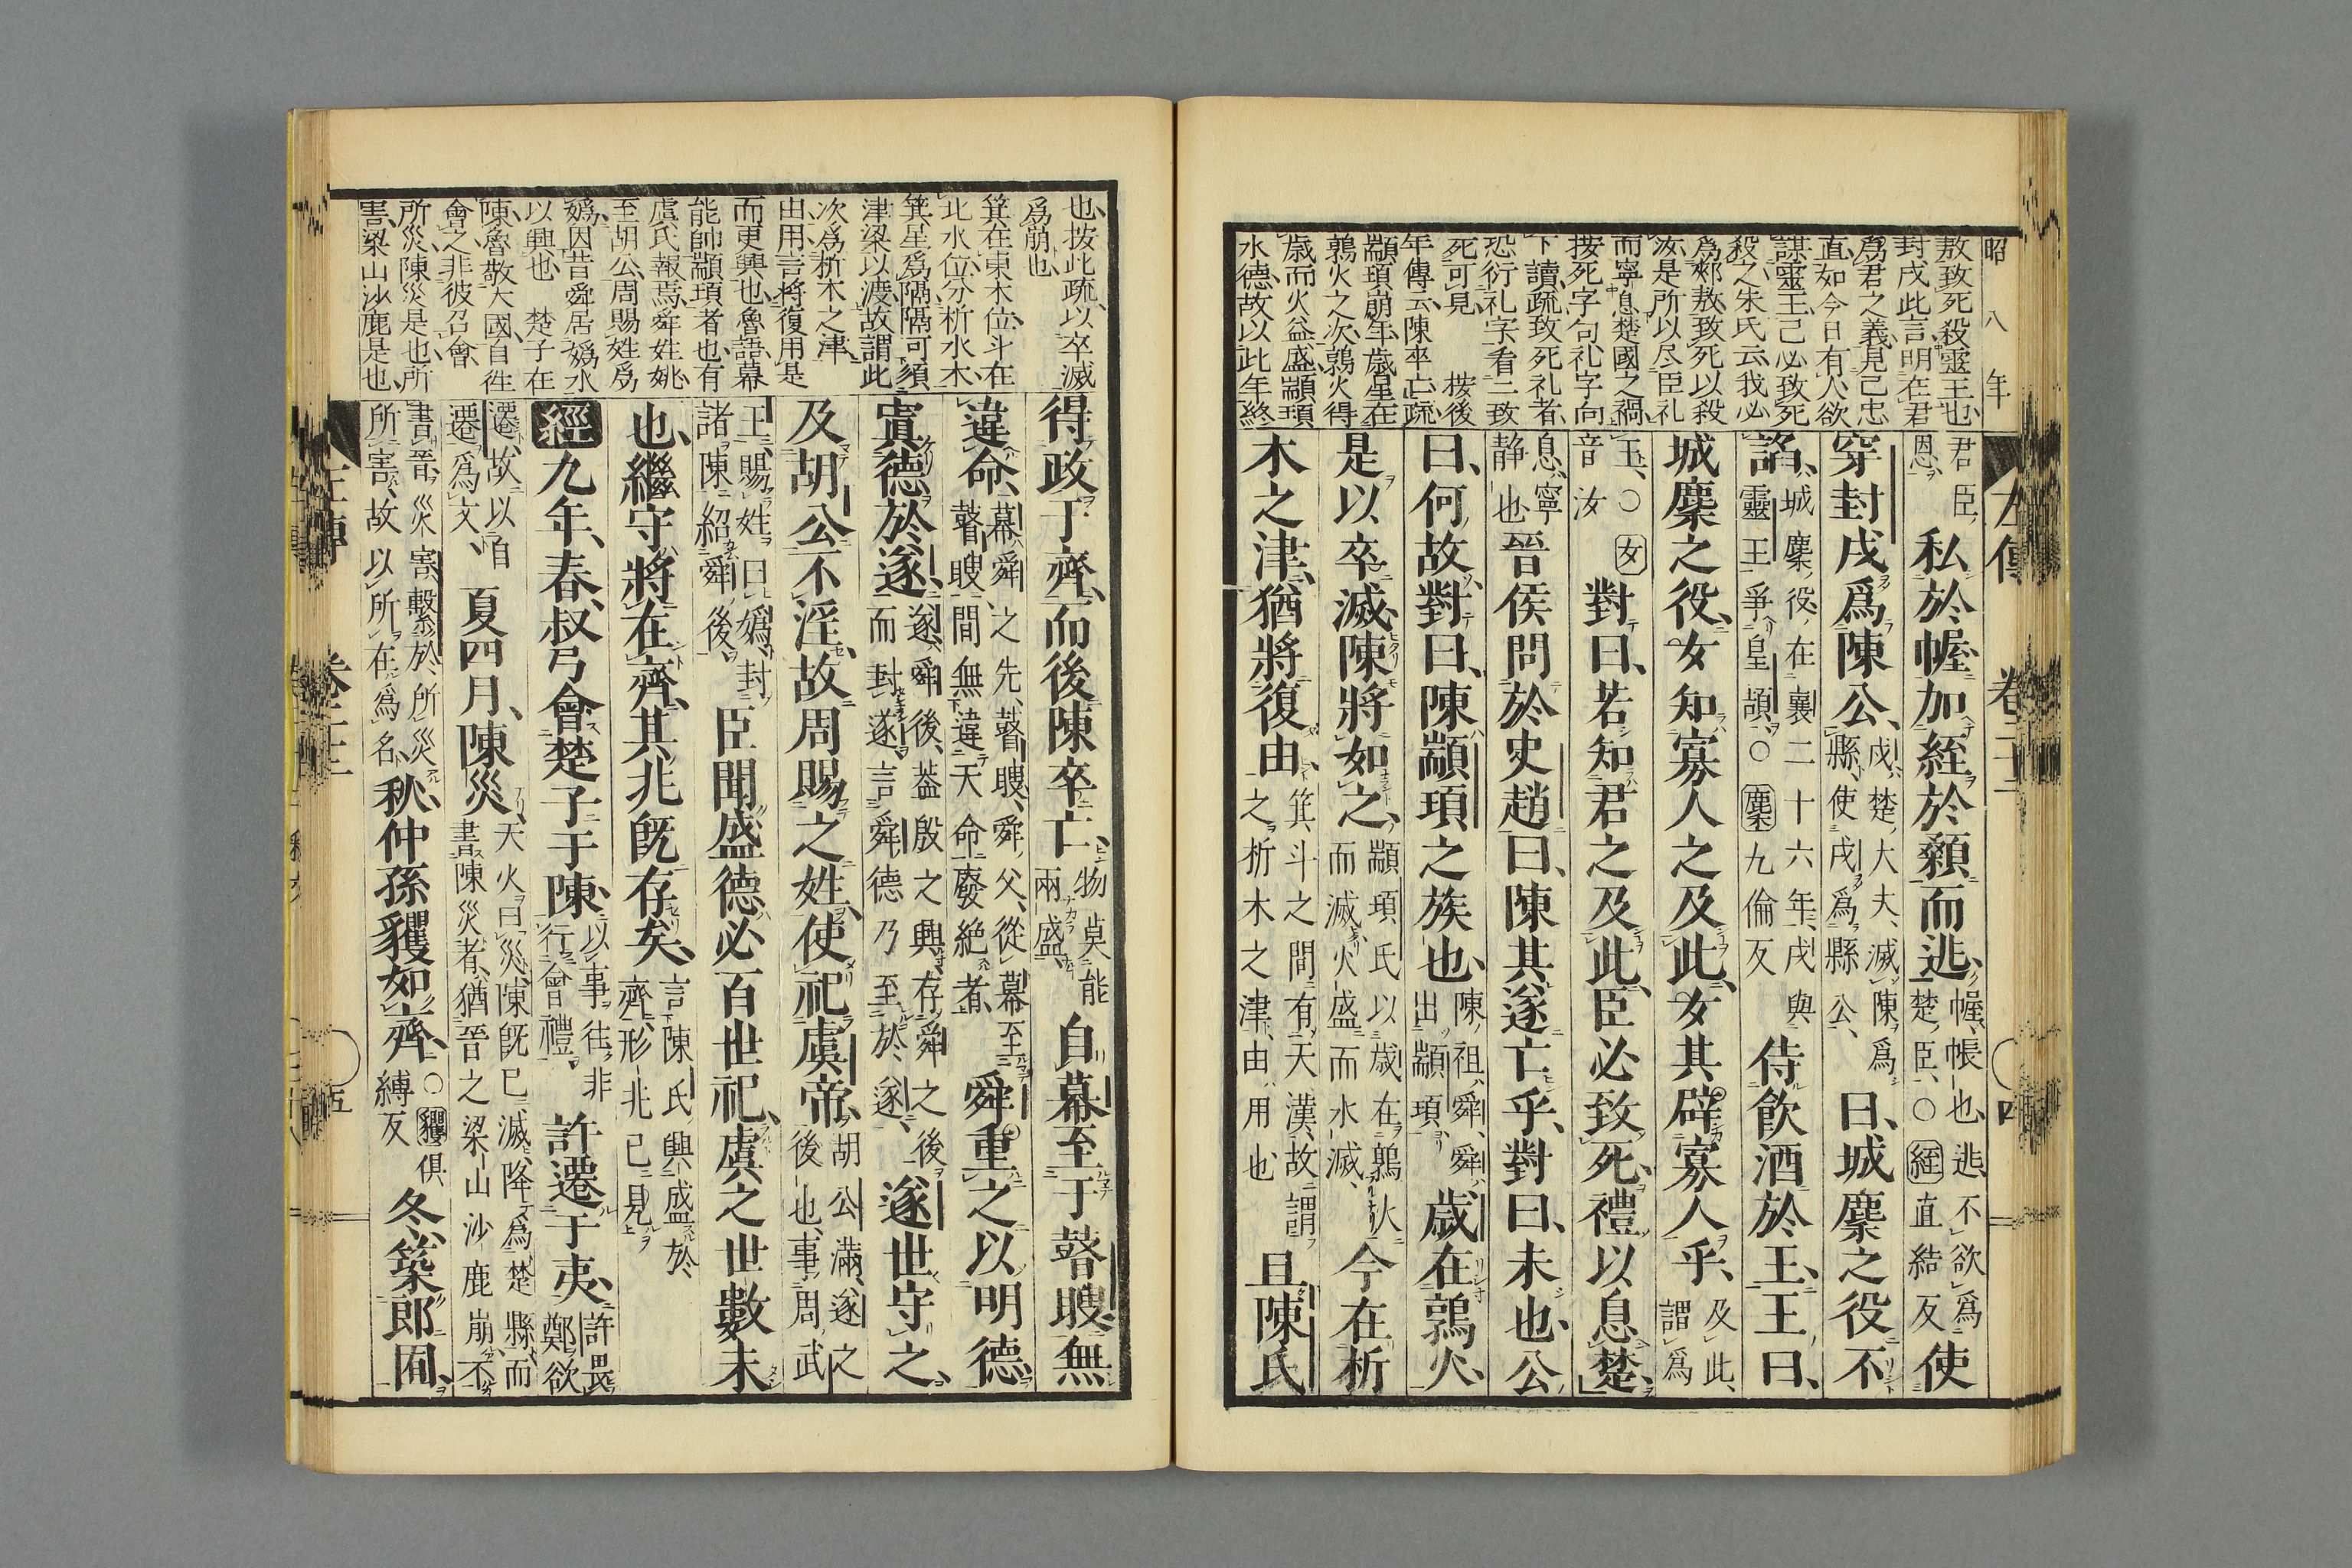 昭八年
敖致死殺靈王也
封戌此言明在君
爲君之義見己忠
直如今日有人欲
謀靈王己必致死
殺之朱氏云我必
爲郟敖致死以殺
汝是所以尽臣礼
而寧息楚國之禍
按死字句礼字向
下讀疏致死礼者
恐衍礼字看二致
死可見 按後
年傳云陳卒亡疏
顓頊崩年歳星在
鶉火之次鶉火得
歳而火益盛顓頊
水德故以此年終
君臣恩私於幄加絰於顙而逃幄帳也逃不欲爲楚臣○絰直結反使
穿封戌爲陳公戌楚大夫滅陳爲縣使戌爲縣公曰城麇之役不
諂城麇役在襄二十六年戌與靈王爭皇頡○麇九倫反侍飲酒於王王曰
城麇之役女知寡人之及此女其辟寡人乎及此謂爲
王○女音汝對曰若知君之及此臣必致死禮以息楚
息寧静也晉侯問於史趙曰陳其遂亡乎對曰未也公
曰何故對曰陳顓頊之族也陳祖舜舜出顓頊歳在鶉火
是以卒滅陳將如之顓頊氏以歳在鶉火而滅火盛而水滅今在析
木之津猶將復由箕斗之間有天漢故謂之析木之津由用也且陳氏
左傳 卷二十二 四
也按此疏以卒滅
爲崩也
箕在東木位斗在
北水位分析水木
箕星爲隔隔可湏
津梁以渡故謂此
次爲析木之津
由用言将復用是
而更興也魯語幕
能帥顓頊者也有
虞氏報焉舜姓姚
至胡公周賜姓爲
嬀因昔舜居嬀水
以興也 楚子在
陳魯敬大國自徃
會之非彼召會
所災陳災是也所
害梁山沙鹿是也
得政于齊而後陳卒亡物莫能兩盛自幕至于瞽瞍無
違命幕舜之先瞽瞍舜父從幕至瞽瞍間無違天命廢絶者舜重之以明德
寘德於遂遂舜後蓋殷之興存舜之後而封遂言舜德乃至於遂遂世守之
及胡公不淫故周賜之姓使祀虞帝胡公滿遂之後也事周武
王賜姓曰嬀封諸陳紹舜後臣聞盛德必百世祀虞之世數未
也繼守將在齊其兆旣存矣言陳氏興盛於齊形兆已見
經九年春叔弓會楚子于陳以事往非行會禮許遷于夷許畏鄭欲
遷故以自遷爲文夏四月陳災天火曰災陳旣已滅降爲楚縣而書陳災者猶晉之梁山沙鹿崩不
書晉災害繫於所災所害故以所在爲名秋仲孫貜如齊○貜俱縛反冬築郎囿
左傳 卷二十二 五